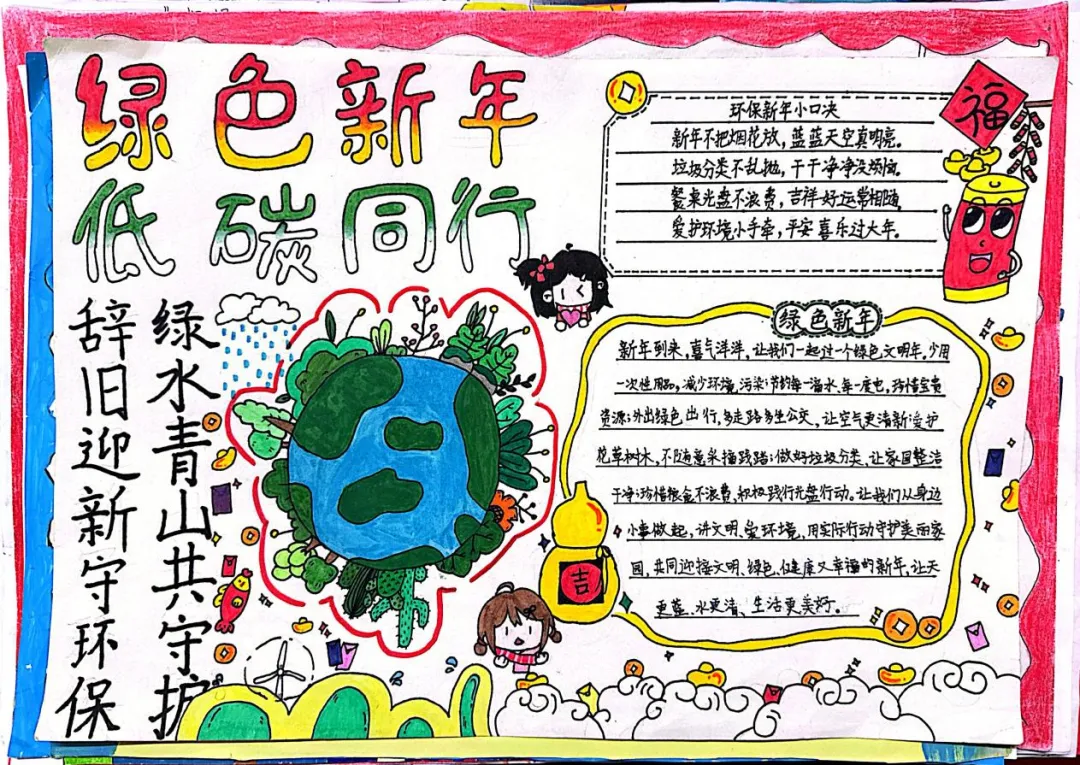 绿色新年
低碳同行
辞旧迎新守环保
绿水青山共守护
环保新年小口决
新年不把烟花放，蓝蓝天空真明亮。
垃圾分类不乱抛，干干净净没烦恼。
餐桌光盘不浪费，吉祥好运常相随
爱护环境小手牵，平安喜乐过大年。
福
绿色新年
新年到来，喜气洋洋，让我们一起过一个绿色文明年，少用
一次性用品，减少环境污染；节约每一滴水、每一度电，珍惜宝贵
资源；外出绿色出行，多走路多坐公交，让空气更清新；爱护
花草树木，不随意采摘践踏；做好垃圾分类，让家园整洁
干净；珍惜粮食不浪费，积极践行光盘行动。让我们从身边
小事做起，讲文明、爱环境，用实际行动守护美丽家
园，共同迎接文明、绿色、健康又幸福的新年，让天
更蓝、水更清、生活更美好。
吉